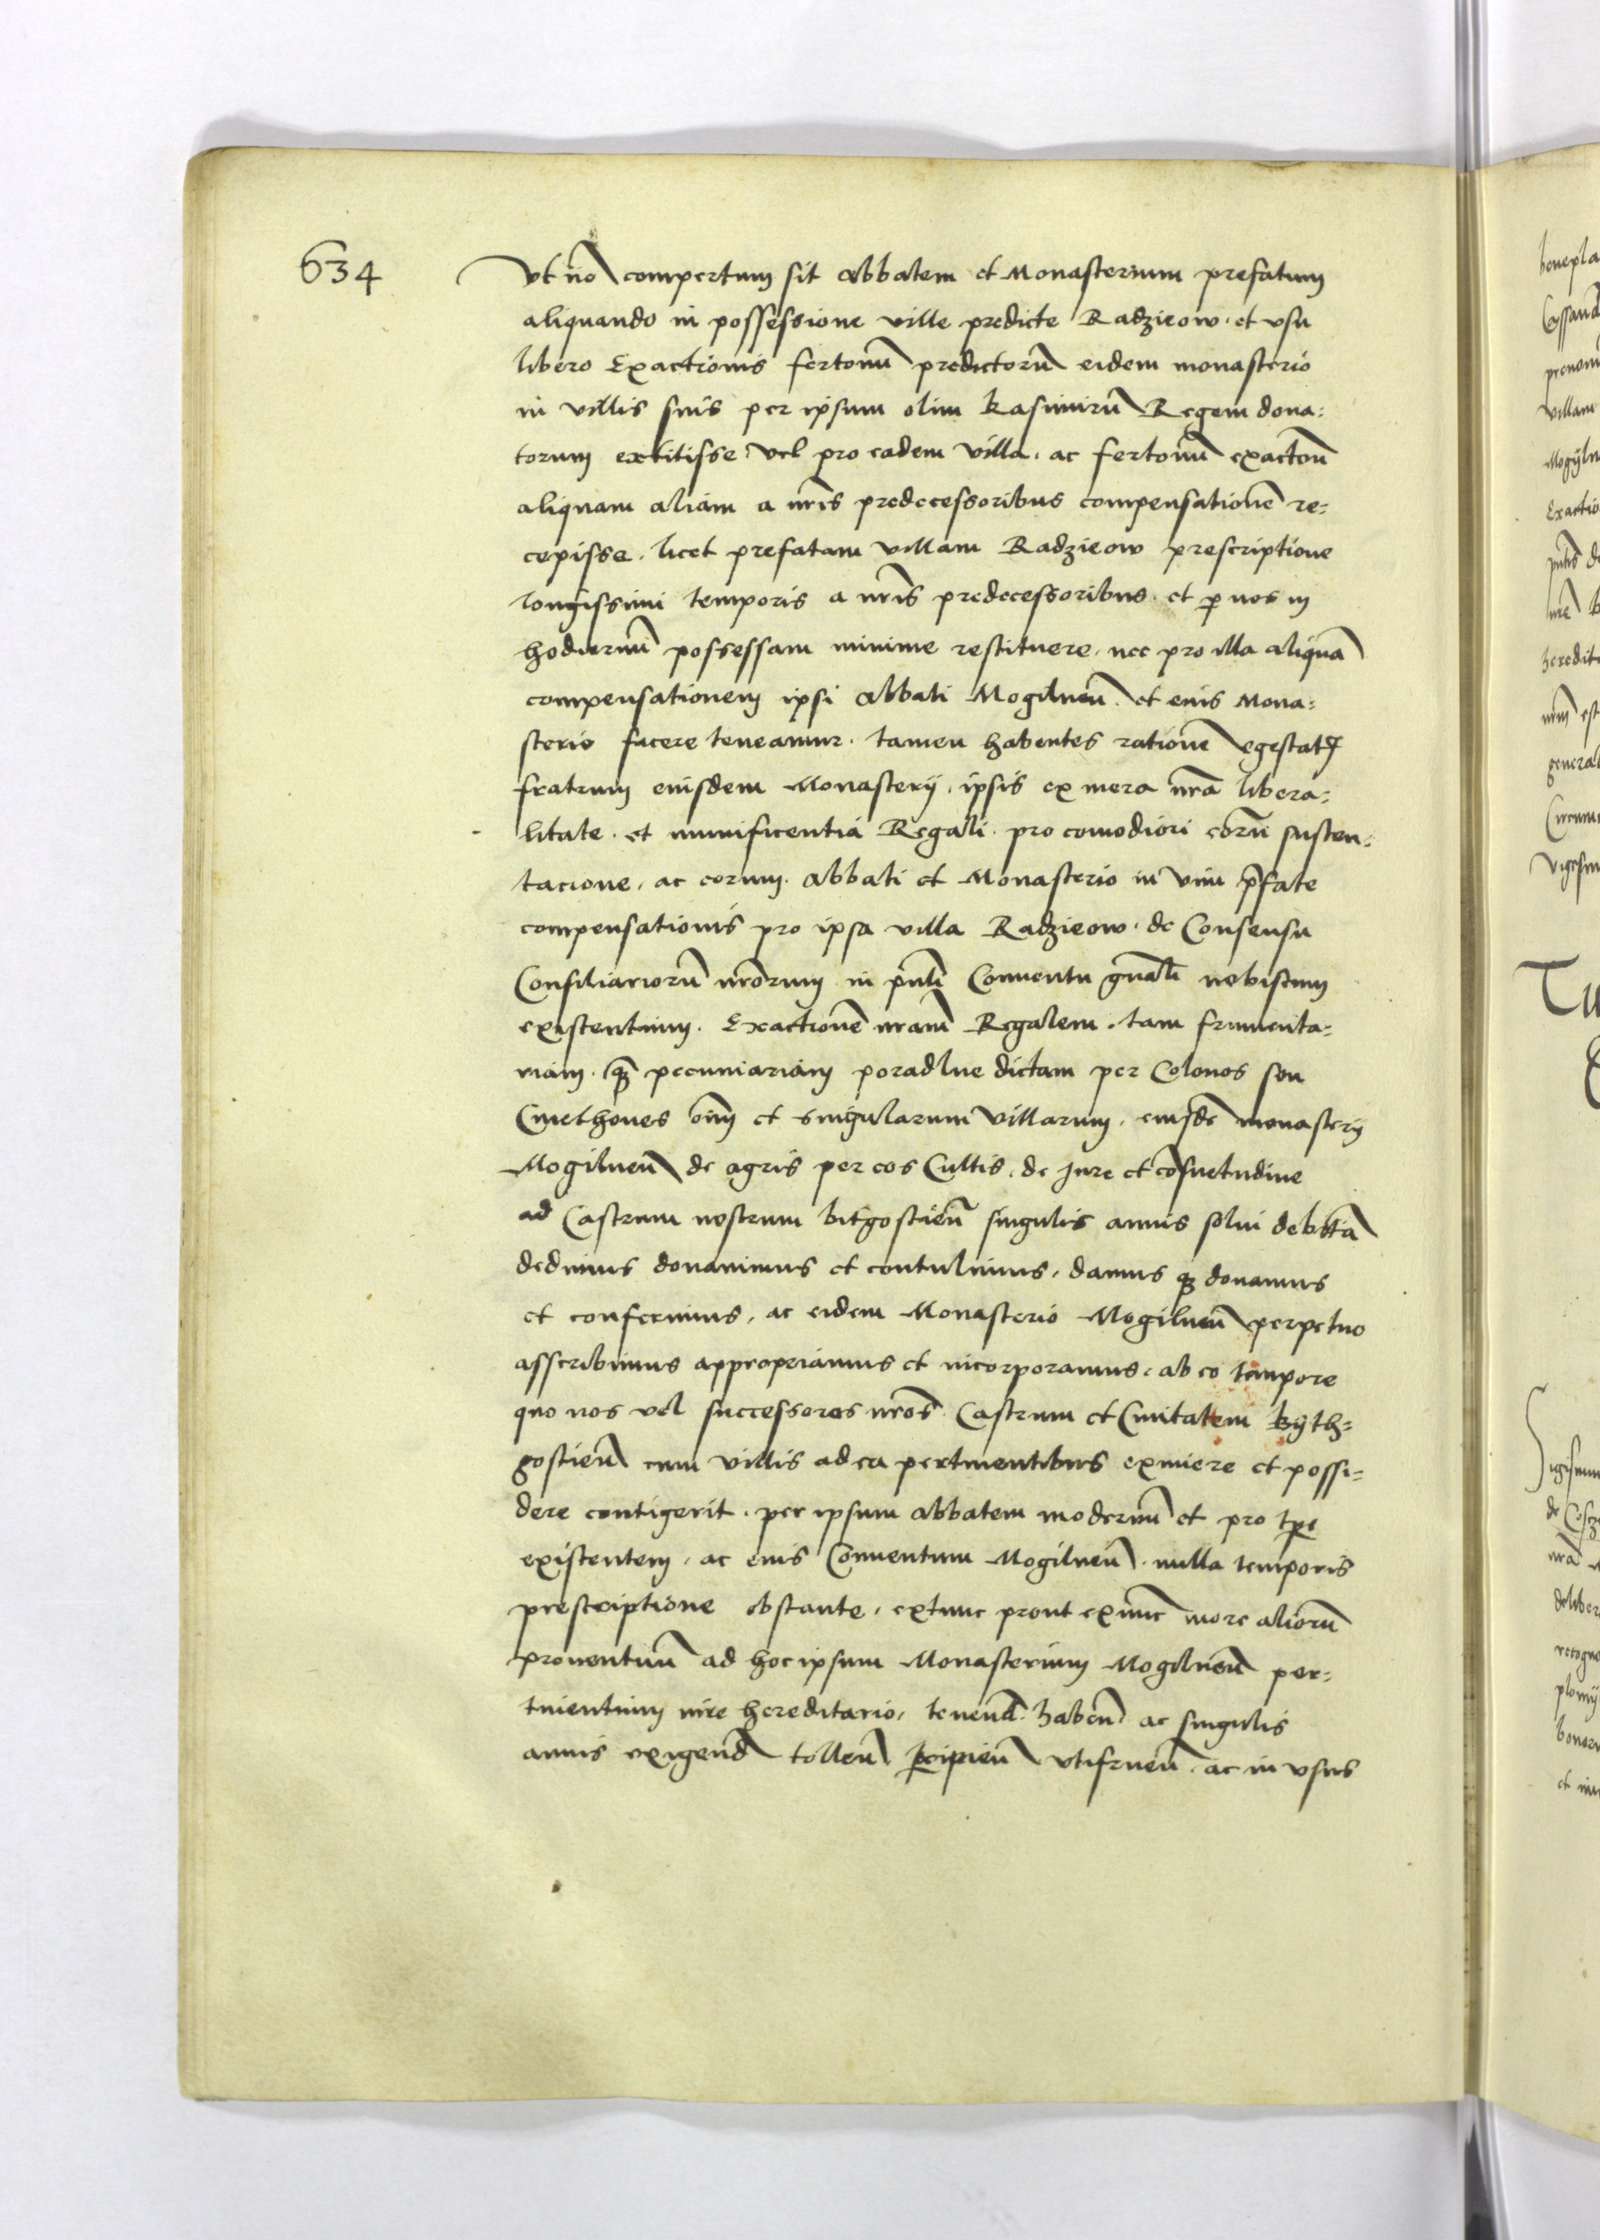 634
Vt no compertum sit Abbatem et Monasterium prefatum
aliquando in possessione ville predicte Radzieow. et vsu
libero Exactionis fertonū predictorū eidem monasterio
in villis suis per ipsum olim Kasimirū Regem dona=
torum extitisse vel pro eadem villa. ac fertonū exactoū
aliquam aliam a nrīs predecessoribus compensationē re=
cepisse. licet prefatam villam Radzieow prescriptione
longissimi temporis a nrīs predecessoribus. et p nos in
hodiernū possessam minime restituere. nec pro illa aliquā
compensationem ipsi Abbati Mogilneū. et eius Mona=
sterio facere teneamur. tamen habentes rationē egestatꝭ
fratrum eiusdem Monasterij. ipsis ex mera nrā libera=
litate. et munificentia Regali. pro comodiori eorū susten=
tacione, ac eorum. Abbati et Monasterio in vim p̄fate
compensationis pro ipsa villa Radzieow. de Consensu
Consiliariorū nrōrum in pn̄ti Conuentu gn̄ali nobiscum
existentium. Exactionē nram̄ Regalem. tam frumenta=
riam. qꝫ pecuniariam poradlne dictam per Colonos seu
Cmethones oīm et singularum villarum, eiusdē monasterij
Mogilneū de agris per eos Cultis. de Jure et cōsuetudine
ad Castrum nostrum bitgostieū singulis annis solui debitā
dedimus donauimus et contulimus, damus qꝫ donamus
et conferimus, ac eidem Monasterio Mogilneū perpetuo
asscribimus appropriamus et incorporamus, ab eo tempore
quo nos vel successores nrōs Castrum et Ciuitatem byth=
gostieū cum villis ad ea pertinentibus eximere et possi=
dere contigerit. per ipsum abbatem modernū et pro tpe
existentem, ac eius Conuentum Mogilneū. nulla temporis
prescriptione obstante, extunc prout exnūc more aliorū
prouentuū ad hoc ipsum Monasterium Mogilneū per=
tinentium iure hereditario, tenend. habeū. ac singulis
annis exigend tolleū pcipieū vtifrueū. ac in vsus